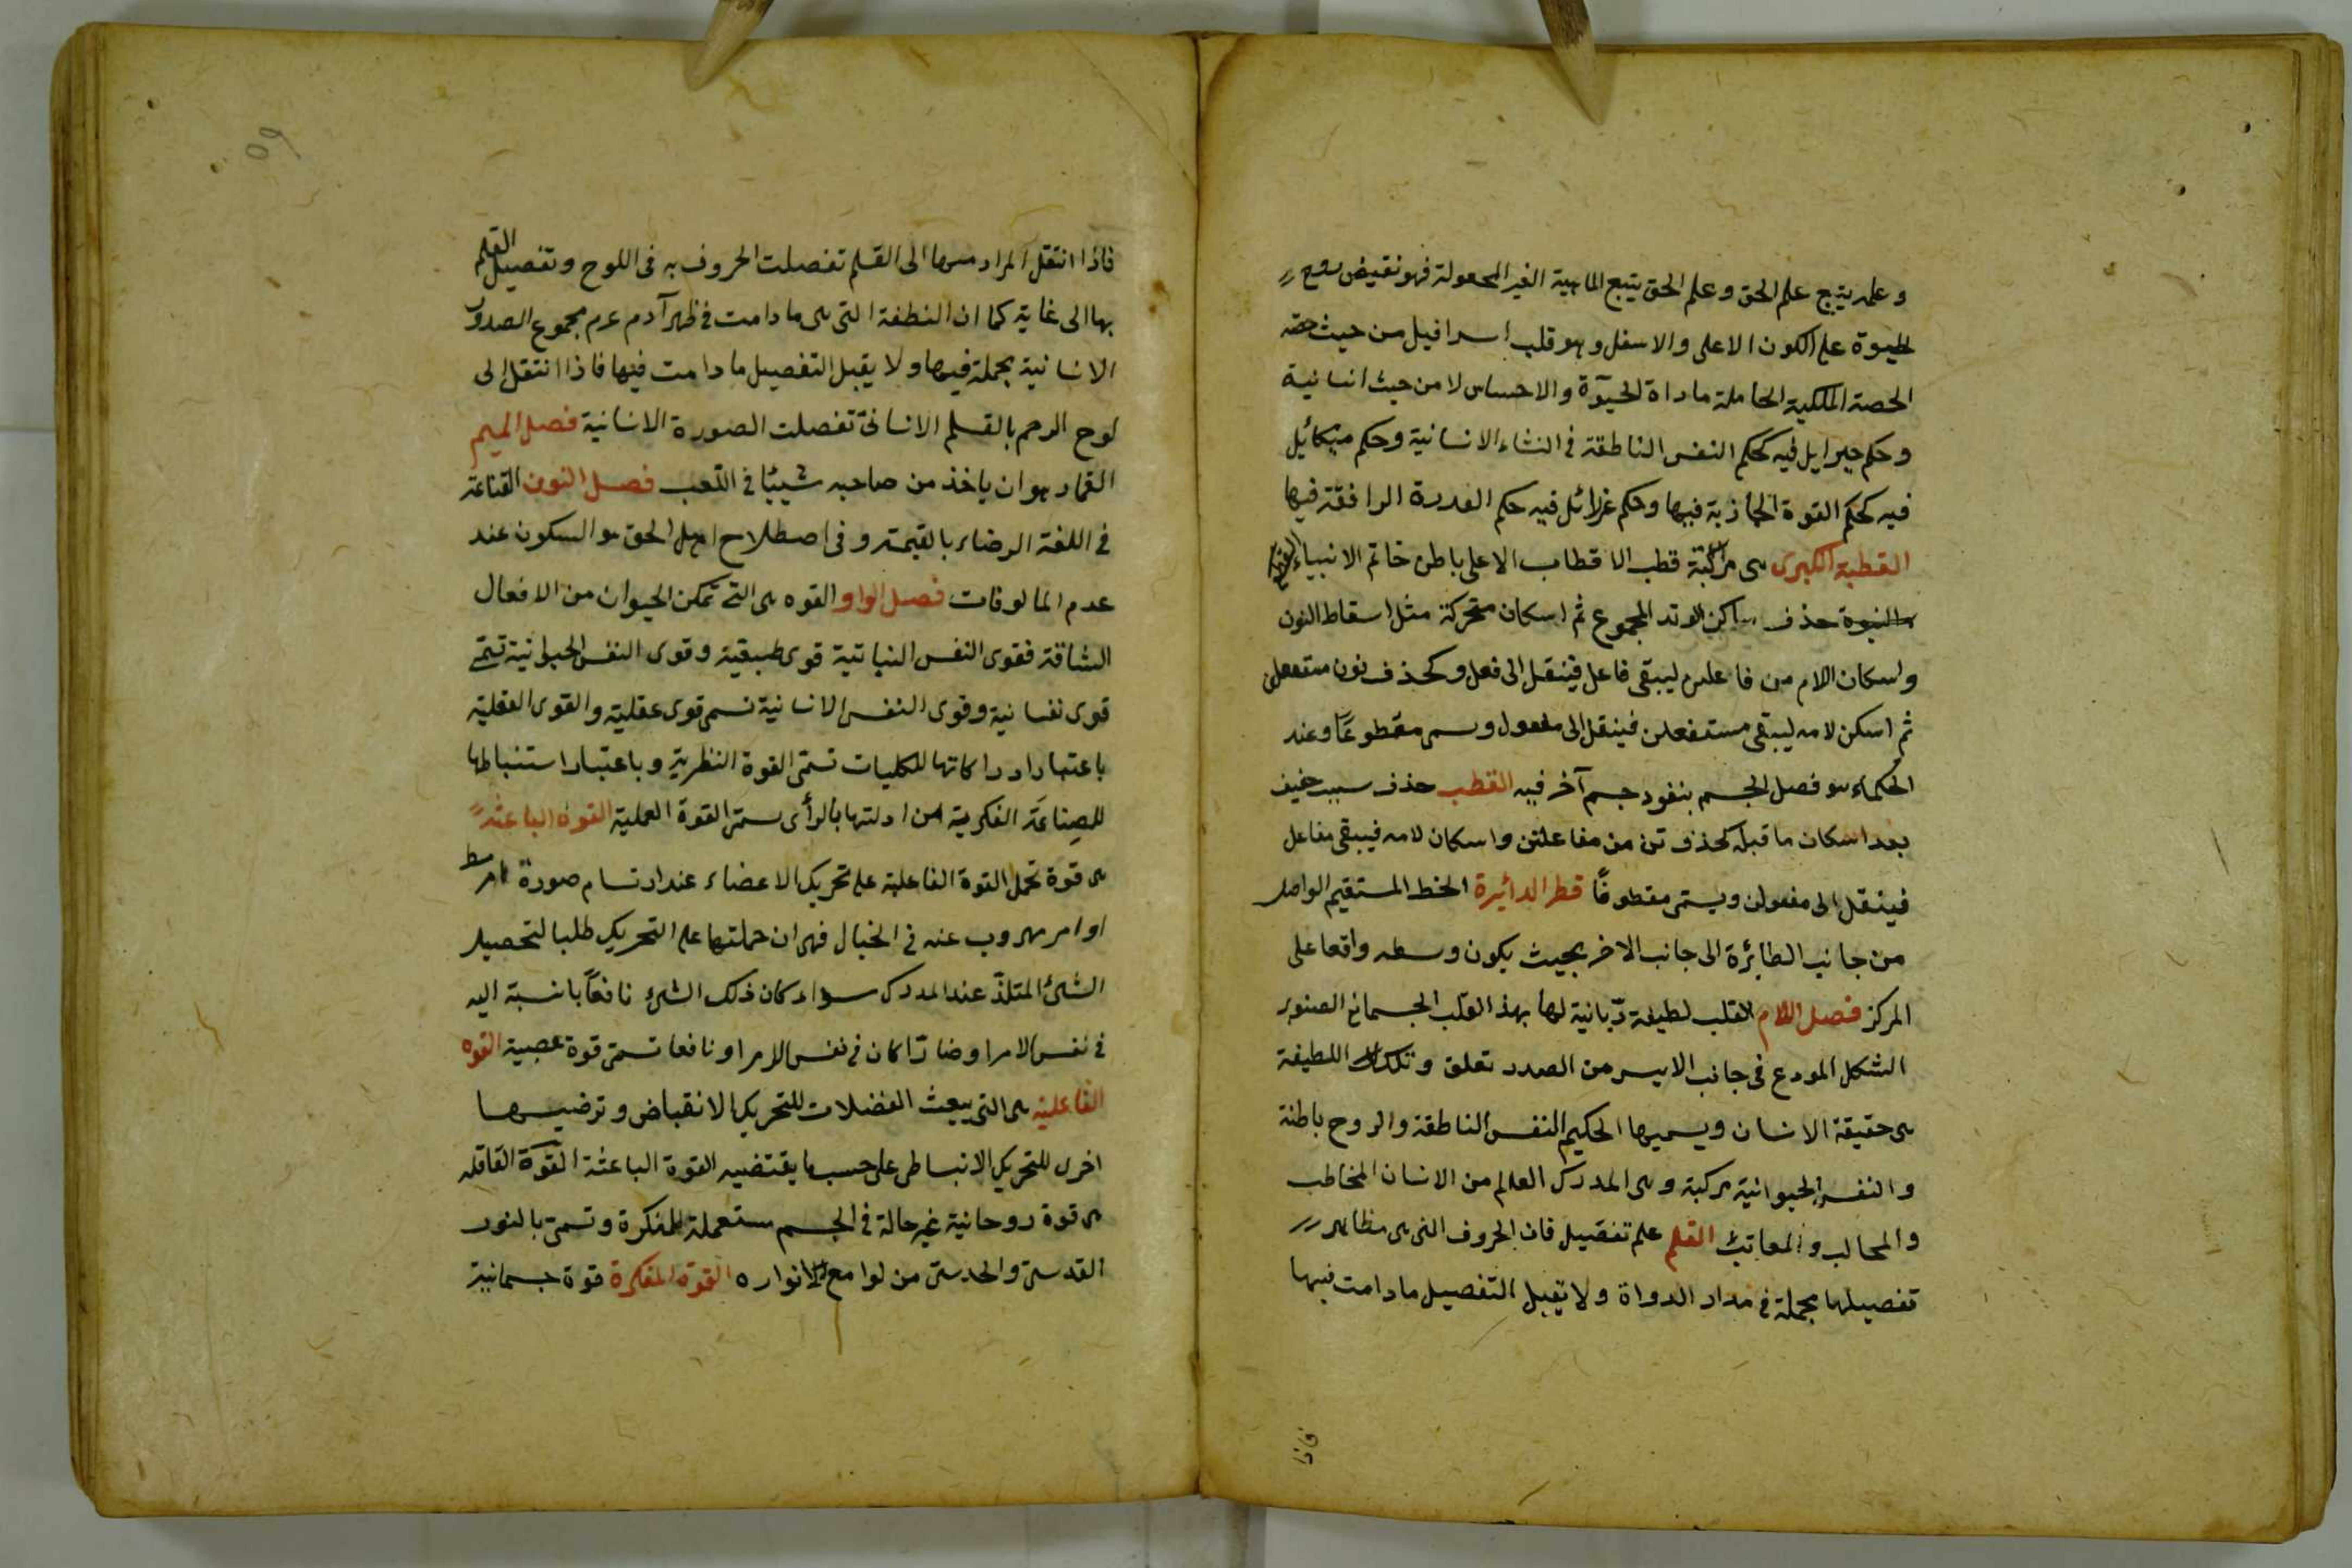 وعلمه يتبع علم الحق وعلم الحق يتبع الماهية الغير المجعولة فهو نقيض روح
الحيوة على الكون الاعلى والاسفل وهو قلب اسرافيل من حيث حصته
الحصة الملكية الحاملة مادة الحيوة والاحساس لا من حيث انسانية
وحكم جبرايل فيه كحكم النفس الناطقة في النشاء الانسانية وحكم ميكائيل
فيه كحكم القوة الجاذبة فيها وحكم عزرائل فيه حكم القدرة الرافقة فيها
القطبة الكبرى هي مركبة قطب الاقطاب الاعلى باطن خاتم الانبياء القطع
النبوة حذف ساكن الوتد المجموع ثم اسكان متحركة مثل اسقاط النون
واسكان اللام من فاعلن ليبقى فاعل فينقل الى فعل وكحذف نون مستفعلن
ثم اسكن لامه ليبقى مستفعلن فينقل الى مفعول وسمى مقطوعاً وعند
الحكماء هو فصل الجسم بنفود جسم آخر فيه القطب حذف سبب خفيف
بعد اسكان ما قبله كحذف تن من مفاعلتن واسكان لامه فيبقى مفاعل
فينقل الى مفعولن ويسمى مقطوفاً قطر الدائيرة الخط المستقيم الواصل
من جانب الطائرة الى جانب الاخر بحيث يكون وسطه واقعا على
المركز فصل اللام القلب لطيفة ربانية لها بهذ القلب الجسماني الصنوبر
الشكل المودع في جانب الايسر من الصدر تعلق وتلك اللطيفة
هي حقيقة الانسان ويسميها الحكيم النفس الناطقة والروح باطنة
والنفس الحيوانية مركبة وهي المدرك العالم من الانسان المخاطب
والمحالب والمعاتب القلم علم تفصيل فان الحروف التي هي مظاهر
تفصيلها مجملة في مداد الدواة ولا تقبل التفصيل مادامت فيها
فاذا
٥٩
فاذا انتقل المراد منها الى القلم تفصلت الحروف به في اللوح وتفصيل القلم
بها الى غاية كما ان النطفة التي هي مادامت في ظهر آدم عرم مجموع الصور
الانسانية بجملة فيها ولا يقبل التفصيل مادامت فيها فاذا انتقل الى
لوح الرحم بالقلم الانسانى تفصلت الصورة الانسانية فصل الميم
القمار هو ان ياخذ من صاحبه شيئا في اللعب فصل النون القناعة
في اللغة الرضاء بالقيمته وفى اصطلاح اهل الحق هو السكون عند
عدم المالوفات فصل الواو القوه هي التى تمكن الحيوان من الافعال
الشاقة فقوى النفس النباتية قوى طبيقية وقوى النفس الحيوانية تسمى
قوى نفسانية وقوى النفس الانسانية تسمى قوى عقلية والقوى العقلية
باعتبار ادراكاتها للكليات تسمى القوة النظرية وباعتبار استنباطها
للصناعة الفكرية من ادلتها بالرأى يسمى القوة العملية القوة الباعثة
هي قوة تحمل القوة الفاعلية على تحريك الاعضاء عند ارتسام صورة امر
اوامر مهروب عنه في الخيال فهى ان حملتها على التحريك طلبا لتحصيل
الشئ المتلذ عند المدرك سواء كان ذلك الشئ نافعاً بانسبة اليه
في نفس الامر او ضارًا كان في نفس الامر او نافعا تسمى قوة عصبية القوه
الفاعلية هي التى يبعث العضلات للتحريك الانقباض وترضيها
اخرى للتحريك الانبساطى على حسب ما يقتضيه القوة الباعثة القوة القاقله
هي قوة روحانية غير حالة في الجسم مستعملة المفكرة وتسمى بالنور
القدسى والحدسى من لوامع الانواره القوة المفكرة قوة جسمانية